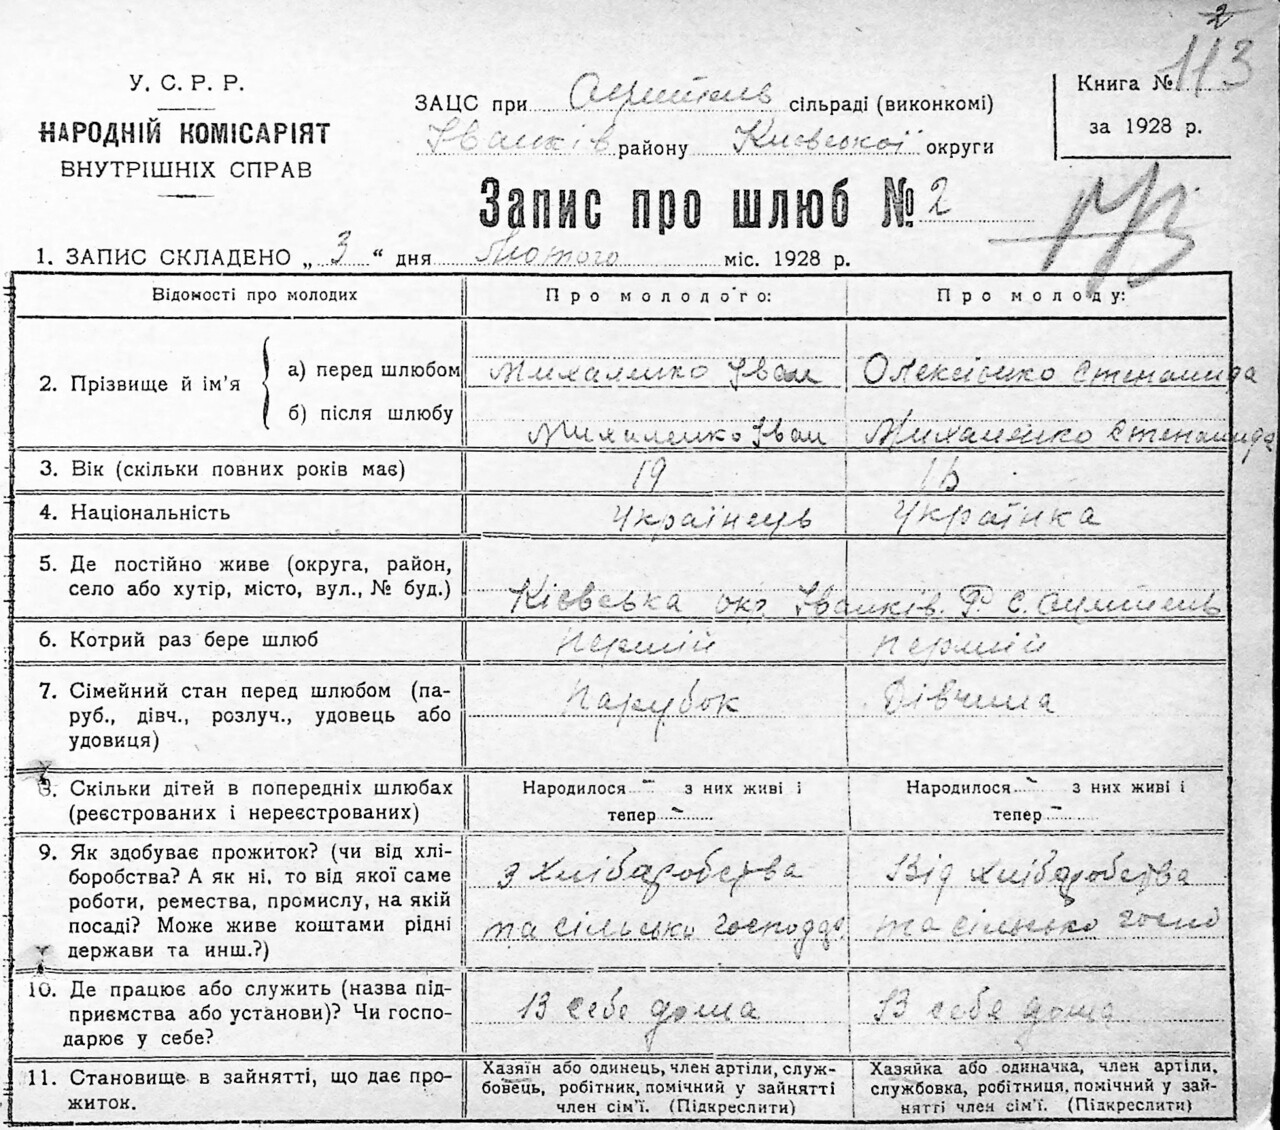 2
113
У. С. Р. Р.
НАРОДНІЙ КОМІСАРІЯТ
ВНУТРІШНІХ СПРАВ
ЗАЦС при сільраді (виконкомі)
Іванків району Киевської округи
Книга № 113
за 1928 р.
Запис про шлюб № 2
1. ЗАПИС СКЛАДЕНО „ 3 “ дня Лютого міс. 1928 р.
Відомості про молодих
Про молодого:
Про молоду:
2. Прізвище й ім'я
а) перед шлюбом
Михаленко Іван
Олексієнко Степанида
б) після шлюбу
Михаленко Іван
Михаленко Степанида
3. Вік (скільки повних років має)
19
4. Національність
Українець
Українка
5. Де постійно живе (округа, район,
село або хутір, місто, вул., № буд.)
Кієвська окр. Іванків. Р. С.
6. Котрий раз бере шлюб
Перший
Перший
7. Сімейний стан перед шлюбом (па-
руб., дівч., розлуч., удовець або
удовиця)
Парубок
Дівчина
8. Скільки дітей в попередніх шлюбах
(реєстрованих і нереєстрованих)
Народилося - з них живі і
тепер -
Народилося - з них живі і
тепер -
9. Як здобуває прожиток? (чи від хлі-
боробства? А як ні, то від якої саме
роботи, ремества, промислу, на якій
посаді? Може живе коштами рідні
держави та инш.?)
з хліборобства
та сільсько господар
Від хліборобства
та сільсько госпо
10. Де працює або служить (назва під-
приємства або установи)? Чи госпо-
дарює у себе?
В себе дома
В себе дома
11. Становище в зайнятті, що дає про-
житок.
Хазяїн або одинець, член артілі, служ-
бовець, робітник, помічний у зайнятті
член сім'ї. (Підкреслити)
Хазяйка або одиначка, член артілі,
службовка, робітниця, помічний у зай-
нятті член сім'ї. (Підкреслити)